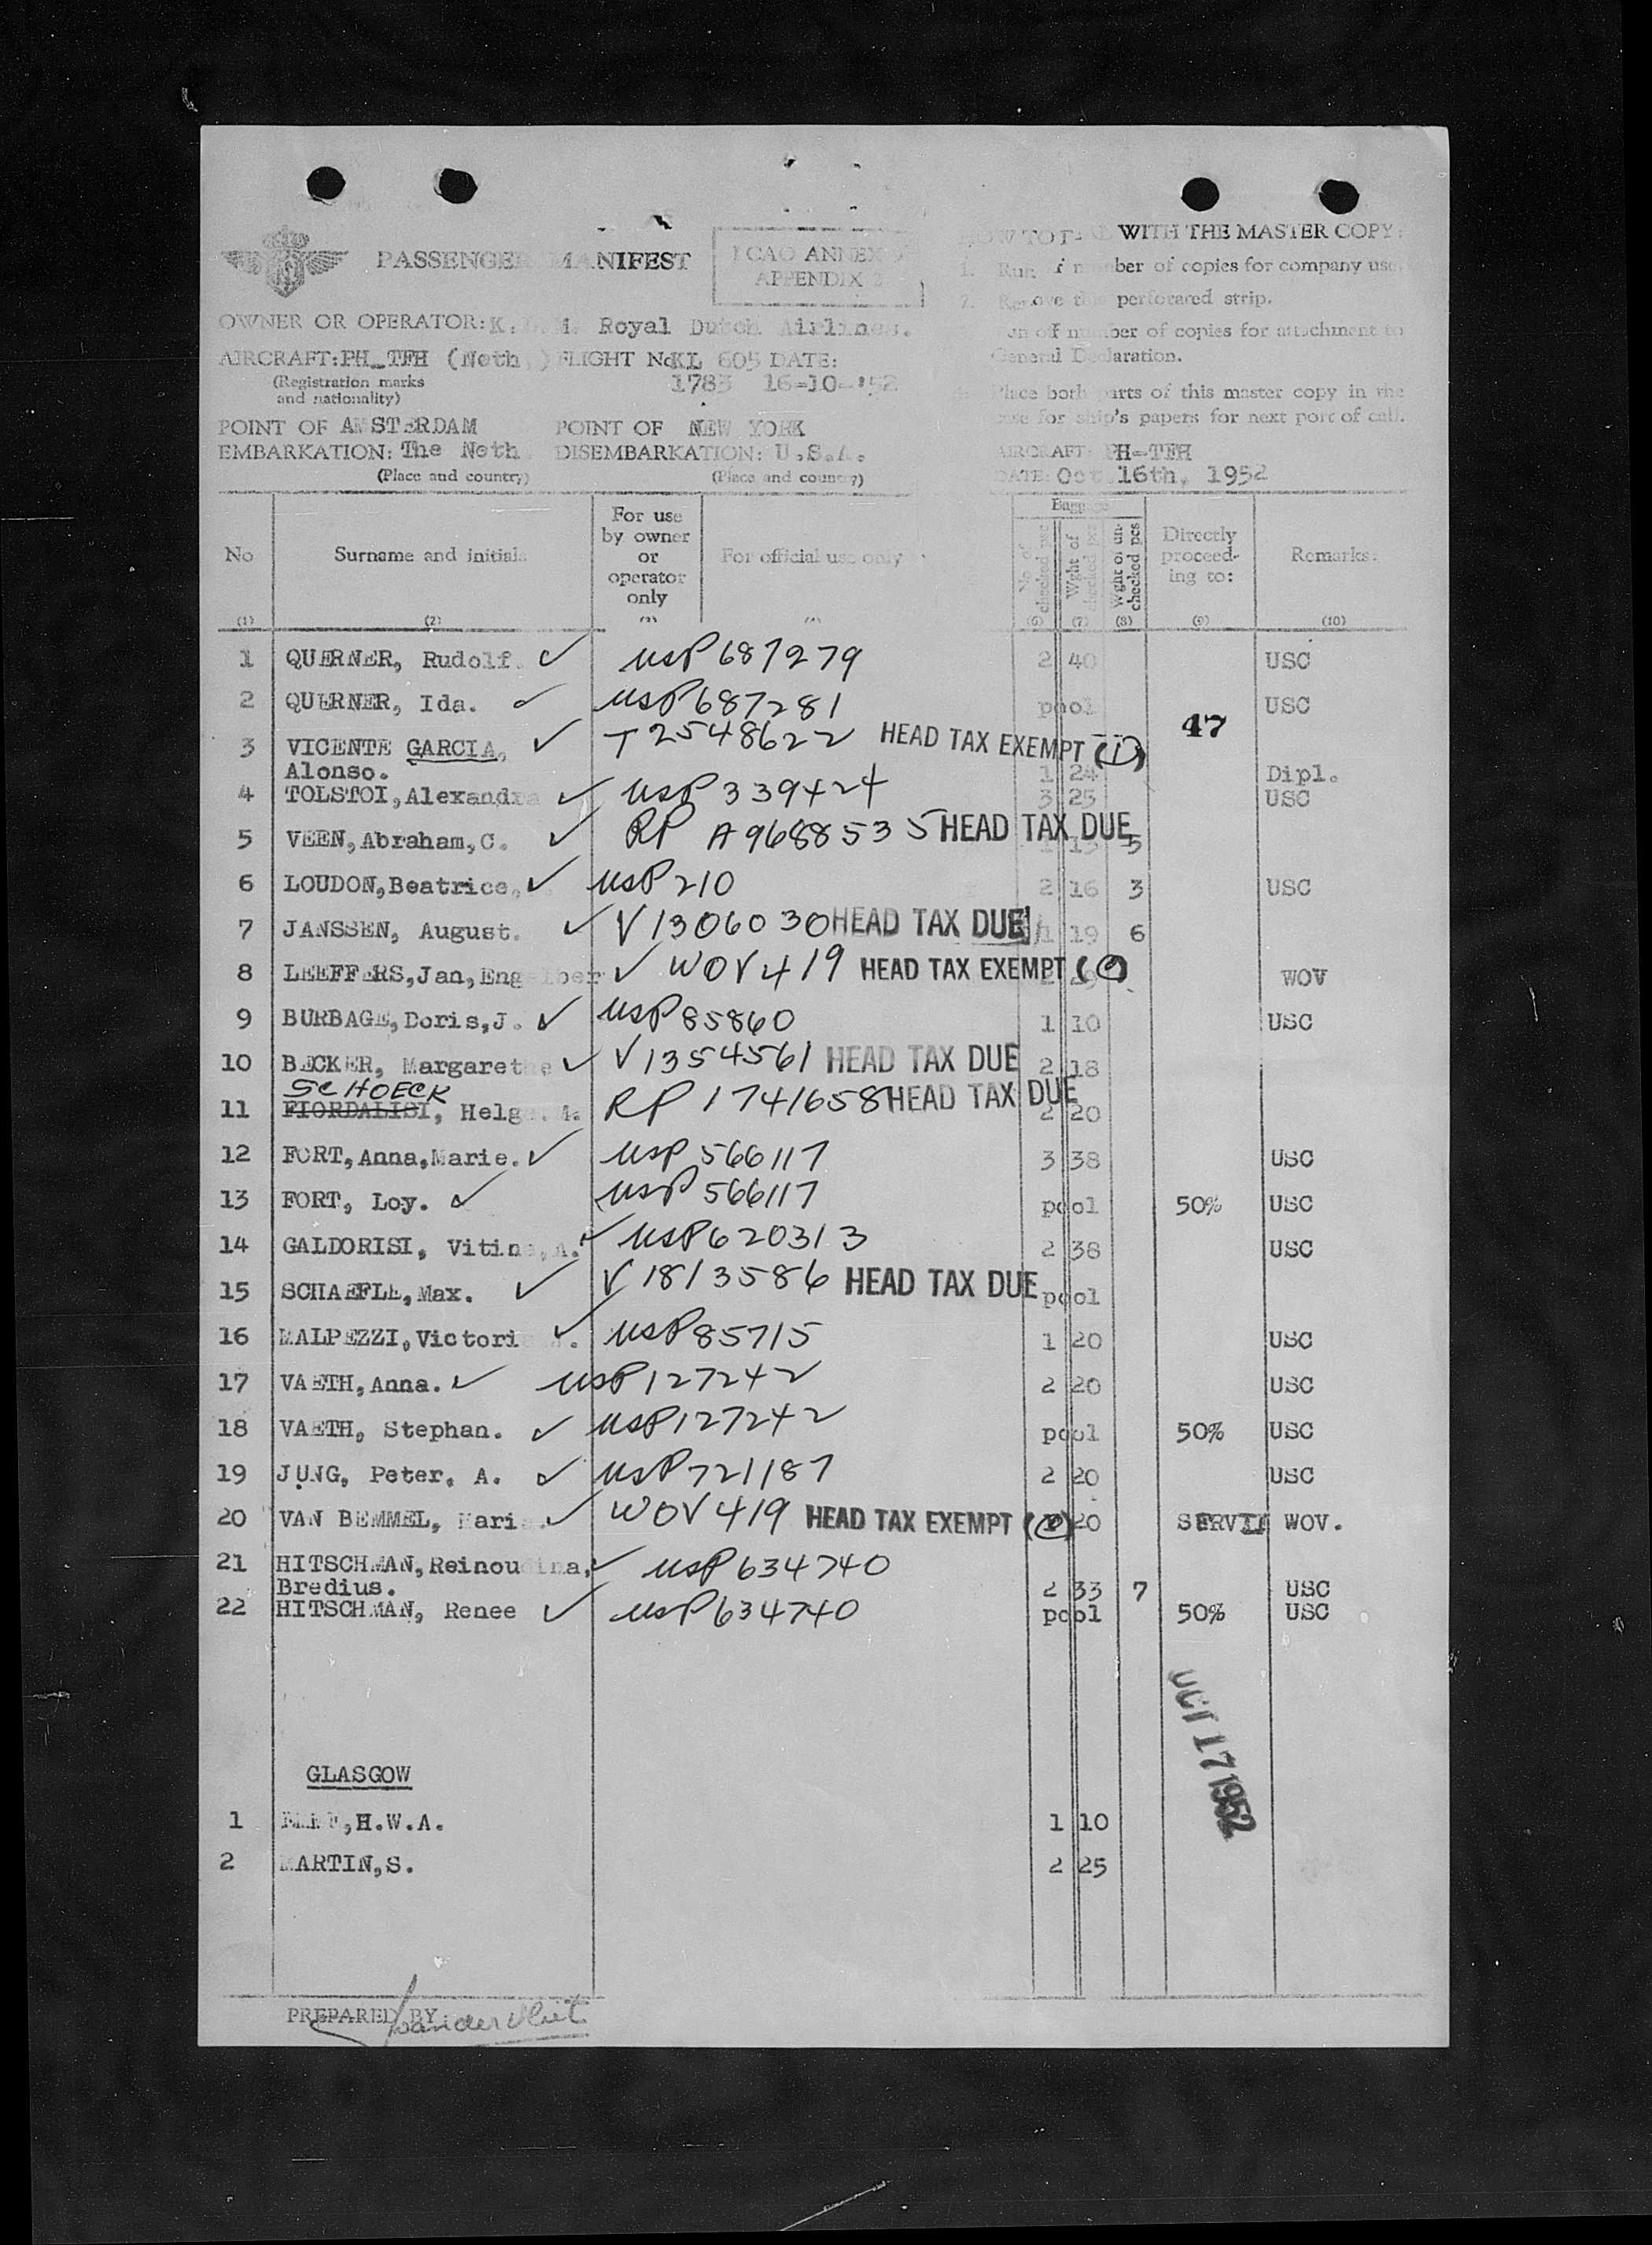 PASSENGER MANIFEST
ICAO ANNEX 9
APPENDIX 2
WITH THE MASTER COPY:
1. Run off number of copies for company use.
2. Remove this perforared strip.
number of copies for attachment to
General Declaration.
Place both parts of this master copy in the
case for ship's papers for next port of call.
OWNER OR OPERATOR: K.L.M. Royal Dutch Airlines.
AIRCRAFT: PH_TFH (Neth.) FLIGHT No KL 605 DATE:
(Registration marks
and nationality)
1783 16-10-'52
POINT OF AMSTERDAM POINT OF NEW YORK
EMBARKATION: The Neth. DISEMBARKATION: U.S.A.
(Place and country) (Place and country)
AIRCRAFT: PH-TFH
DATE: Oct 16th, 1952
No (1)
Surname and initials (2)
For use by owner or operator only
For official use only
Baggage
No of checked pcs (6)
Wght of checked pcs (7)
Wght of un-checked pcs (8)
Directly proceed-ing to: (9)
Remarks: (10)
1 QUERNER, Rudolf. usP 687279 2 40 USC
2 QUERNER, Ida. usP 687281 pool USC
47
3 VICENTE GARCIA, T 2548622 HEAD TAX EXEMPT (1)
Alonso. 1 24 Dipl.
4 TOLSTOI,Alexandra usP 339424 3 25 USC
5 VEEN,Abraham,C. RP A9688535 HEAD TAX DUE 1 15 5
6 LOUDON,Beatrice, usP 210 2 16 3 USC
7 JANSSEN, August. V 1306030 HEAD TAX DUE 1 19 6
8 LEEFFERS,Jan,Engelber WOV 419 HEAD TAX EXEMPT WOV
9 BURBAGE,Doris,J. usP 85860 1 10 USC
10 BECKER, Margarethe V 1354561 HEAD TAX DUE 2 18
SCHOECK
11 FIORDALISI, Helga. RP 1741658 HEAD TAX DUE 2 20
12 FORT,Anna,Marie. usP 566117 3 38 USC
13 FORT, Loy. usP 566117 pool 50% USC
14 GALDORISI, Vitina,A. usP 620313 2 38 USC
15 SCHAEFLE,Max. V 1813586 HEAD TAX DUE pool
16 MALPEZZI,Victori usP 85715 1 20 USC
17 VAETH,Anna. usP 127242 2 20 USC
18 VAETH, Stephan. usP 127242 pool 50% USC
19 JUNG, Peter, A. usP 721187 2 20 USC
20 VAN BEMMEL, Mari WOV 419 HEAD TAX EXEMPT 20 WOV.
21 HITSCHMAN,Reinoudina, usP 634740
Bredius. 2 33 7 USC
22 HITSCHMAN, Renee usP 634740 pool 50% USC
OCT 17 1952
GLASGOW
1 H.W.A. 1 10
2 MARTIN,S. 2 25
PREPARED BY vander Vliet